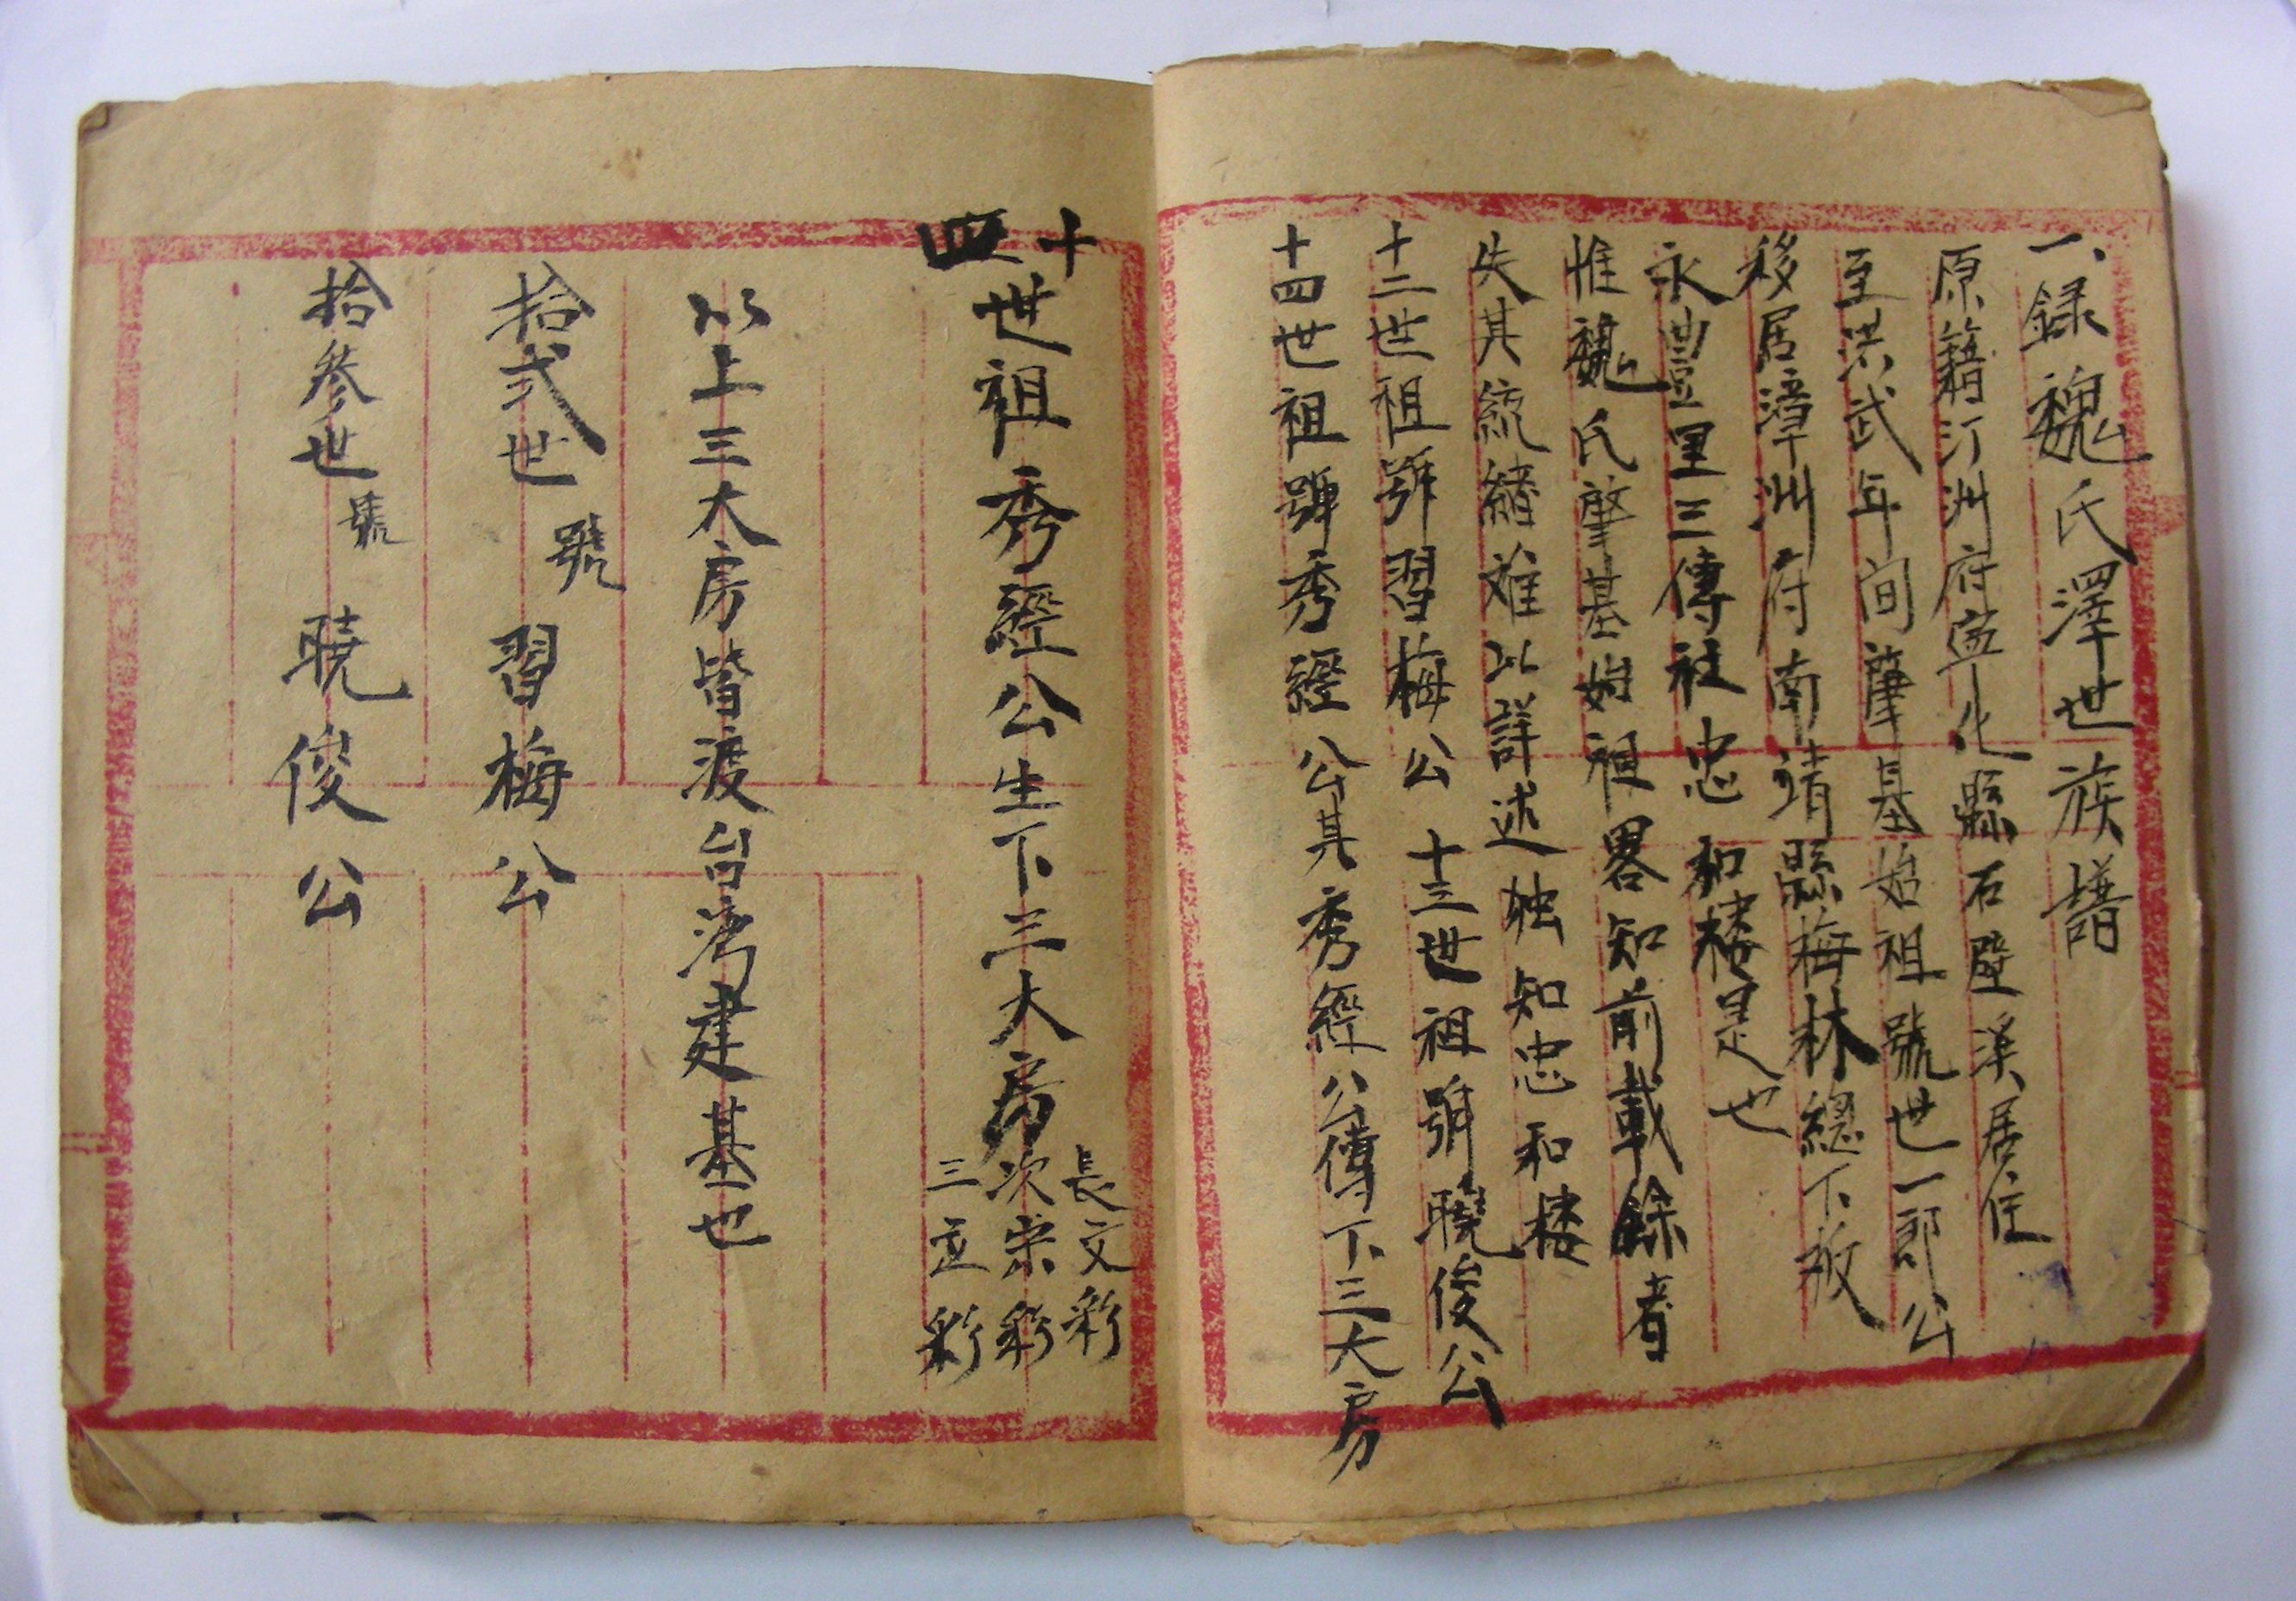 一、録魏氏澤世族譜
原籍汀洲府寧化縣石壁溪居住
至洪武年间肇基始祖號世一郎公
移居漳洲府南靖縣梅林總下坂
永豊里三傳社忠和楼是也
惟魏氏肇基始祖畧知前載餘者
失其統緒难以詳述独知忠和楼
十二世祖號習梅公 十三世祖號曉俊公
十四世祖號秀經公其秀經公傳下三大房
十四世祖秀經公生下三大房
長文彩
次宗彩
三正彩
以上三大房皆渡台湾建基也
拾弍世號習梅公
拾參世號曉俊公